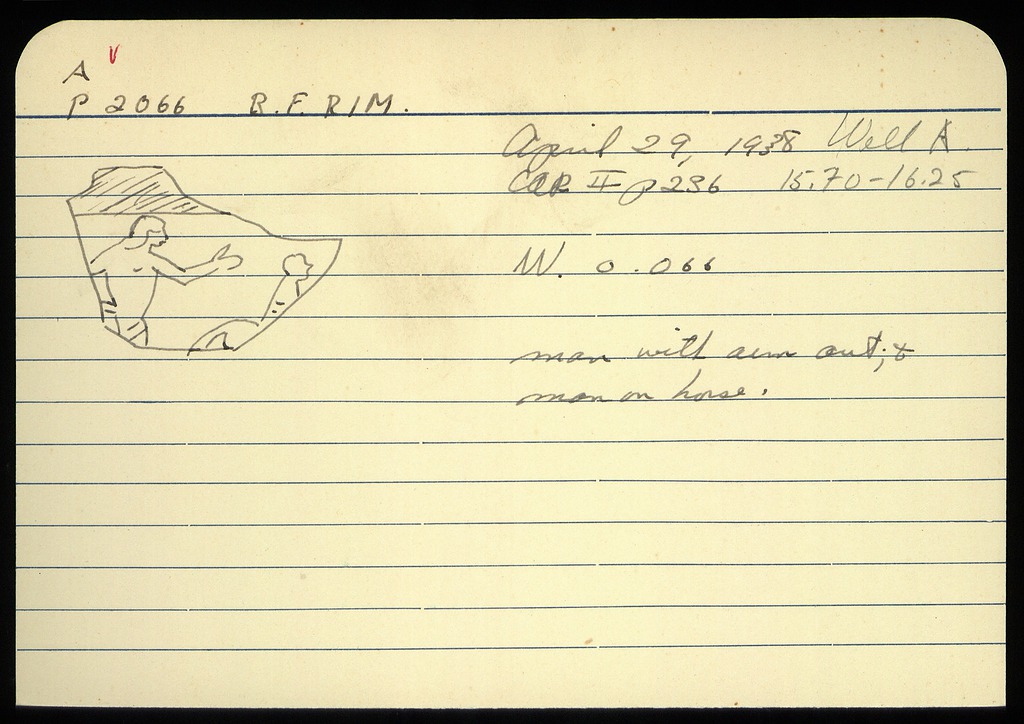 A v
P 2066 R.F. RIM.
April 29, 1938 Well A.
COR II p 236 15.70-16.25
W. 0.066
man with arm out; &
man on horse.